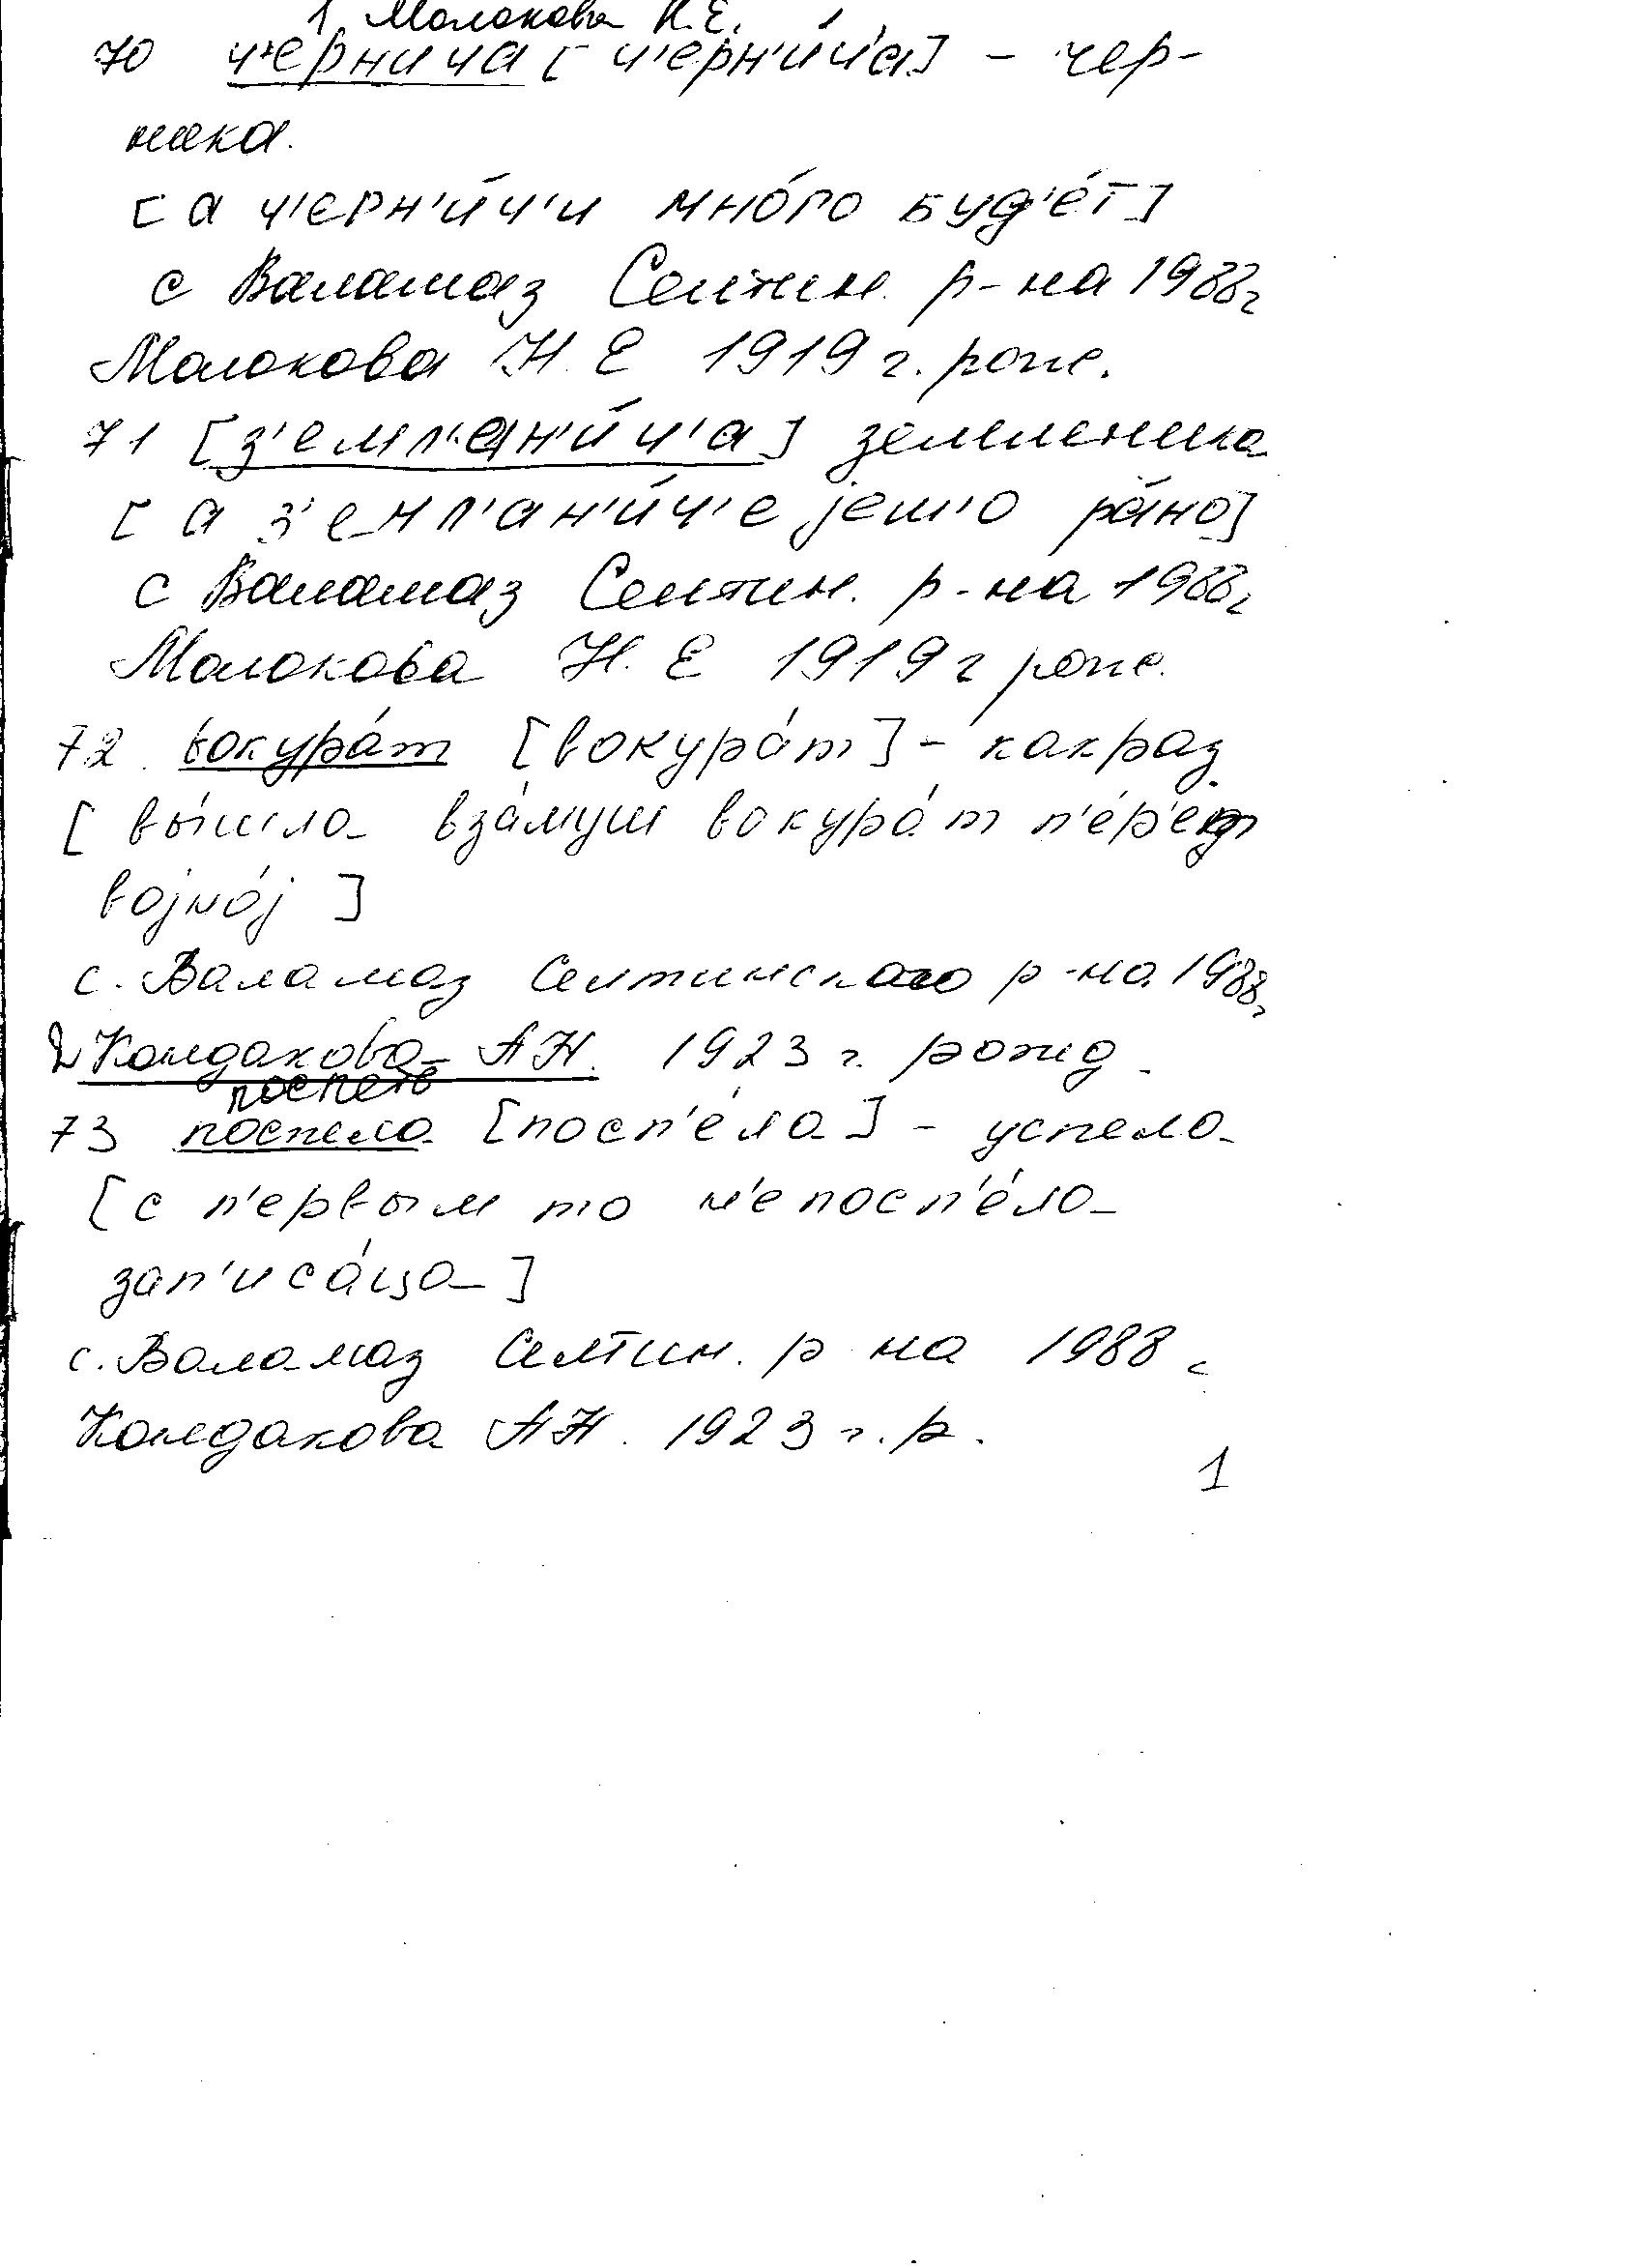 1. Молокова Н.Е.
70 ч'ернича [ч'ерн'и́ч'а] – чер-
ника.
[а ч'ерн'и́ч'и мно́го буд'е́т]
с Валамаз Селтин. р-на 1988г
Молокова Н.Е 1919 г. рож.
71 [з'емл'ан'и́ч'а] земленика
[а з'емл'ан'и́ч'е jеш'о ра́но]
с Валамаз Селтин. р-на 1988г
Молокова Н.Е 1919 г рож.
72. вокура́т [вокура́т] – какраз
[вы́шла вза́муш вокура́т п'е́р'ет
војно́ј]
с. Валамаз Селтинского р-на 1988г
2 Колдакова А Н. 1923 г. рожд.
поспеть
73 поспела [посп'е́ла] – успела
[с п'ервым то н'е посп'е́ла
зап'иса́ца]
с. Валамаз Селтин. р на 1988 г
Колдакова А Н. 1923 г. р.
1